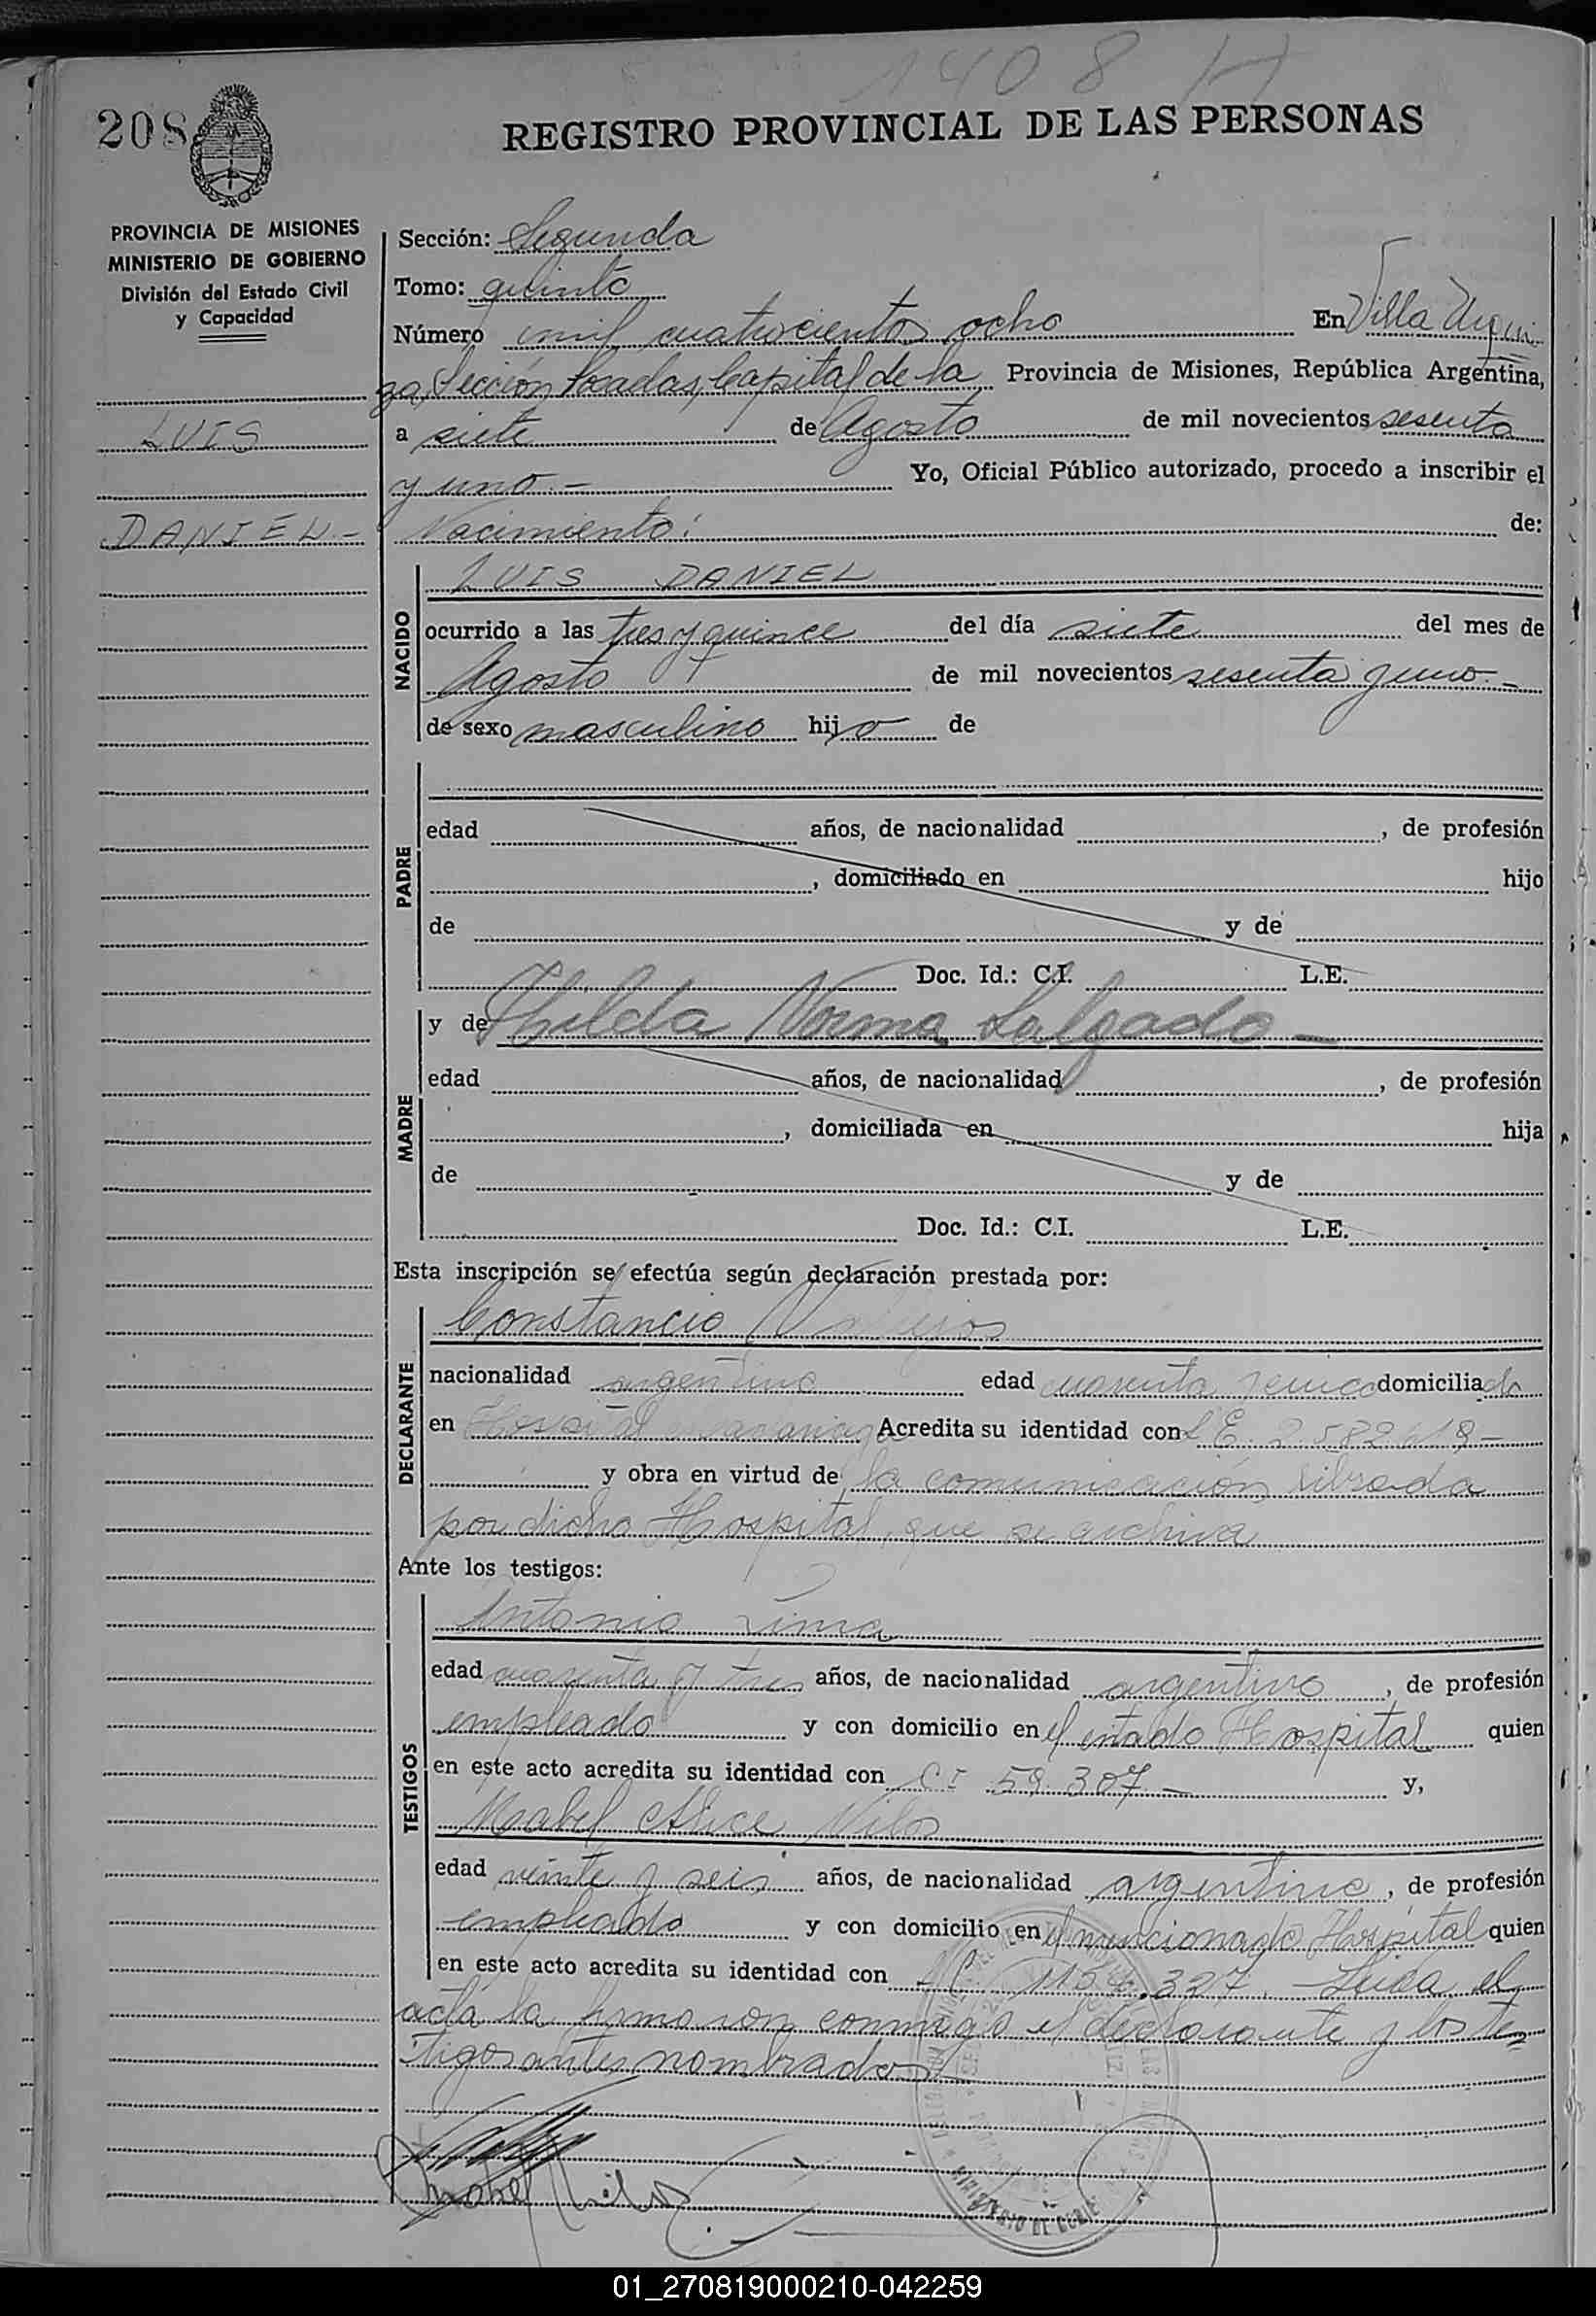 1408 H
208
REGISTRO PROVINCIAL DE LAS PERSONAS
PROVINCIA DE MISIONES
MINISTERIO DE GOBIERNO
División del Estado Civil
y Capacidad
LUIS
DANIEL.-
Sección: Segunda
Tomo: quinto
Número mil cuatrocientos ocho En Villa Urqui
za, Sección Posadas, Capital de la Provincia de Misiones, República Argentina,
a siete de Agosto de mil novecientos sesenta
y uno.- Yo, Oficial Público autorizado, procedo a inscribir el
Nacimiento: de:
NACIDO
LUIS DANIEL
ocurrido a las tres y quince del día siete del mes de
Agosto de mil novecientos sesenta y uno.-
de sexo masculino hijo de
PADRE
edad años, de nacionalidad , de profesión
, domiciliado en hijo
de y de
Doc. Id.: C.I. L.E.
MADRE
y de Hilda Norma Salgado -
edad años, de nacionalidad , de profesión
, domiciliada en hija
de y de
Doc. Id.: C.I. L.E.
Esta inscripción se efectúa según declaración prestada por:
DECLARANTE
Constancio
nacionalidad argentino edad cuarenta domiciliado
en Hospital Acredita su identidad con L E. 2.582.618-
y obra en virtud de la comunicación librada
por dicho Hospital, que se archiva
Ante los testigos:
TESTIGOS
Antonio Lima
edad cuarenta y tres años, de nacionalidad argentino, de profesión
empleado y con domicilio en el citado Hospital quien
en este acto acredita su identidad con C I 59.307 - y,
Mabel Alice
edad veinte y seis años, de nacionalidad argentina, de profesión
empleada y con domicilio en el mencionado Hospital quien
en este acto acredita su identidad con 327. Leida el
acta la firmaron conmigo el declarante y los tes
tigos antes nombrados
MINISTERIO DE GOBIE
01_270819000210-042259